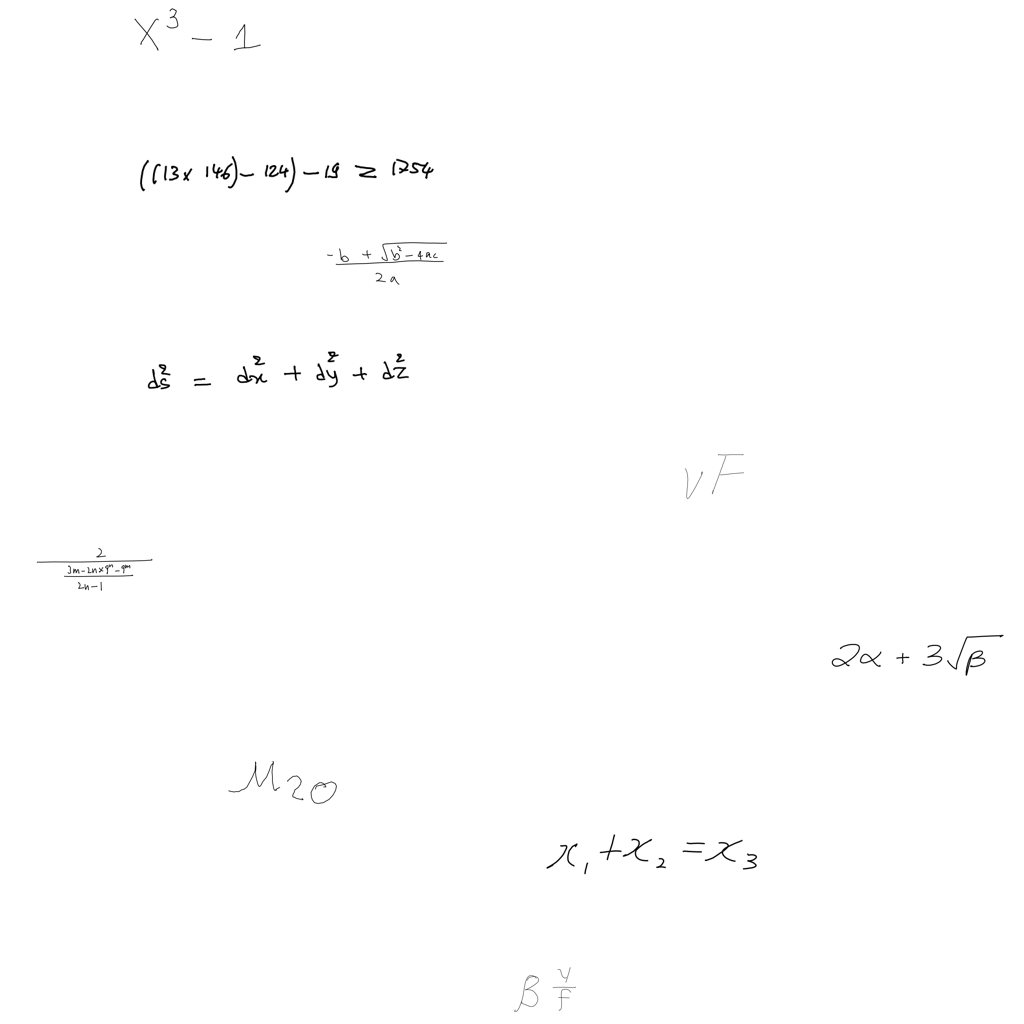 X³ - 1
((13 × 146) - 124) - 19 = 1754
(-b + √(b² - 4ac))/(2a)
ds² = dx² + dy² + dz²
vF
2/((3m - 2n × 9ⁿ - 9ᵐ)/(2n - 1))
2α + 3√β
M20
x₁ + x₂ = x₃
β y/f